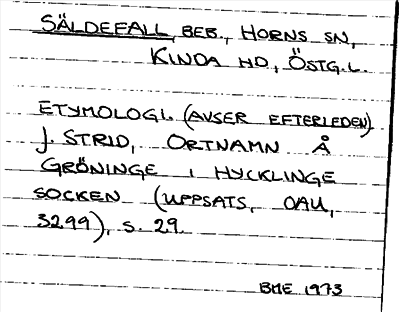 SÄLDEFALL, BEB., HORNS SN,
KINDA HD, ÖSTG.L.
ETYMOLOGI. (AVSER EFTERLEDEN)
J. STRID, ORTNAMN Å
GRÖNINGE I HYCKLINGE
SOCKEN (UPPSATS, OAU,
3299), S. 29.
BME 1973